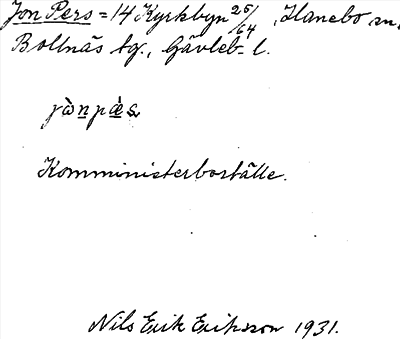 Jon Pers = 14 Kyrkbyn 25/64, Hanebo sn.
Bollnäs tg., Gävleb. l.
jònpæ̀s
Komministerboställe.
Nils Erik Eriksson 1931.